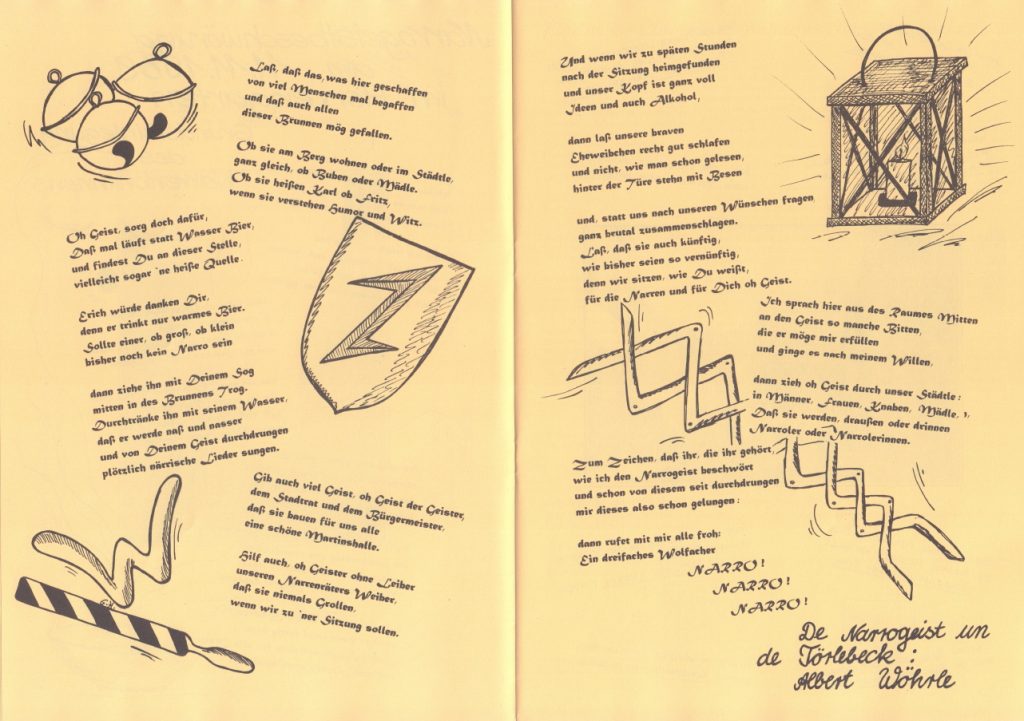 Laß, daß das, was hier geschaffen
von viel Menschen mal begaffen
und daß auch allen
dieser Brunnen mög gefallen.
Ob sie am Berg wohnen oder im Städtle,
ganz gleich, ob Buben oder Mädle.
Ob sie heißen Karl ob Fritz,
wenn sie verstehen Humor und Witz.
Oh Geist, sorg doch dafür,
Daß mal läuft statt Wasser Bier,
und findest Du an dieser Stelle,
vielleicht sogar 'ne heiße Quelle.
Erich würde danken Dir,
denn er trinkt nur warmes Bier.
Sollte einer, ob groß, ob klein
bisher noch kein Narro sein
dann ziehe ihn mit Deinem Sog
mitten in des Brunnens Trog.
Durchtränke ihn mit seinem Wasser,
daß er werde naß und nasser
und von Deinem Geist durchdrungen
plötzlich närrische Lieder sungen.
Gib auch viel Geist, oh Geist der Geister,
dem Stadtrat und dem Bürgermeister,
daß sie bauen für uns alle
eine schöne Martinshalle.
Hilf auch, oh Geister ohne Leiber
unseren Narrenräters Weiber,
daß sie niemals Grollen,
wenn wir zu 'ner Sitzung sollen.
Und wenn wir zu späten Stunden
nach der Sitzung heimgefunden
und unser Kopf ist ganz voll
Ideen und auch Alkohol,
dann laß unsere braven
Eheweibchen recht gut schlafen
und nicht, wie man schon gelesen,
hinter der Türe stehn mit Besen
und, statt uns nach unseren Wünschen fragen,
ganz brutal zusammenschlagen.
Laß, daß sie auch künftig,
wie bisher seien so vernünftig,
denn wir sitzen, wie Du weißt,
für die Narren und für Dich oh Geist.
Ich sprach hier aus des Raumes Mitten
an den Geist so manche Bitten,
die er möge mir erfüllen
und ginge es nach meinem Willen,
dann zieh oh Geist durch unser Städtle:
in Männer, Frauen, Knaben, Mädle,
Daß sie werden, draußen oder drinnen
Narroler oder Narrolerinnen.
Zum Zeichen, daß ihr, die ihr gehört,
wie ich den Narrogeist beschwört
und schon von diesem seit durchdrungen
mir dieses also schon gelungen:
dann rufet mit mir alle froh:
Ein dreifaches Wolfacher
NARRO!
NARRO!
NARRO!
De Narrogeist un
de Törlebeck:
Albert Wöhrle